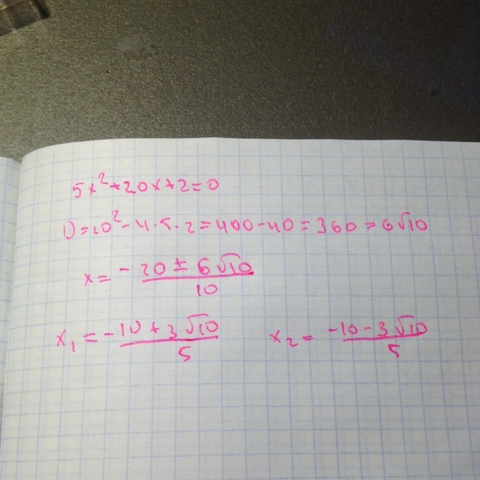 5x²+20x+2=0
D=20²-4·5·2=400-40=360=6√10
x=-20±6√10/10
x₁=-10+3√10/5 x₂=-10-3√10/5